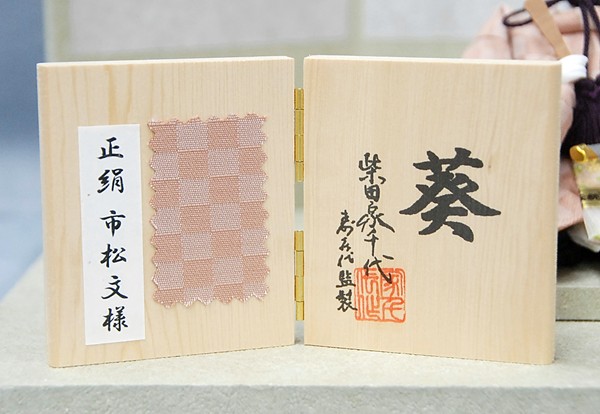 正絹 市松文様
葵
柴田家千代
寿右代監製